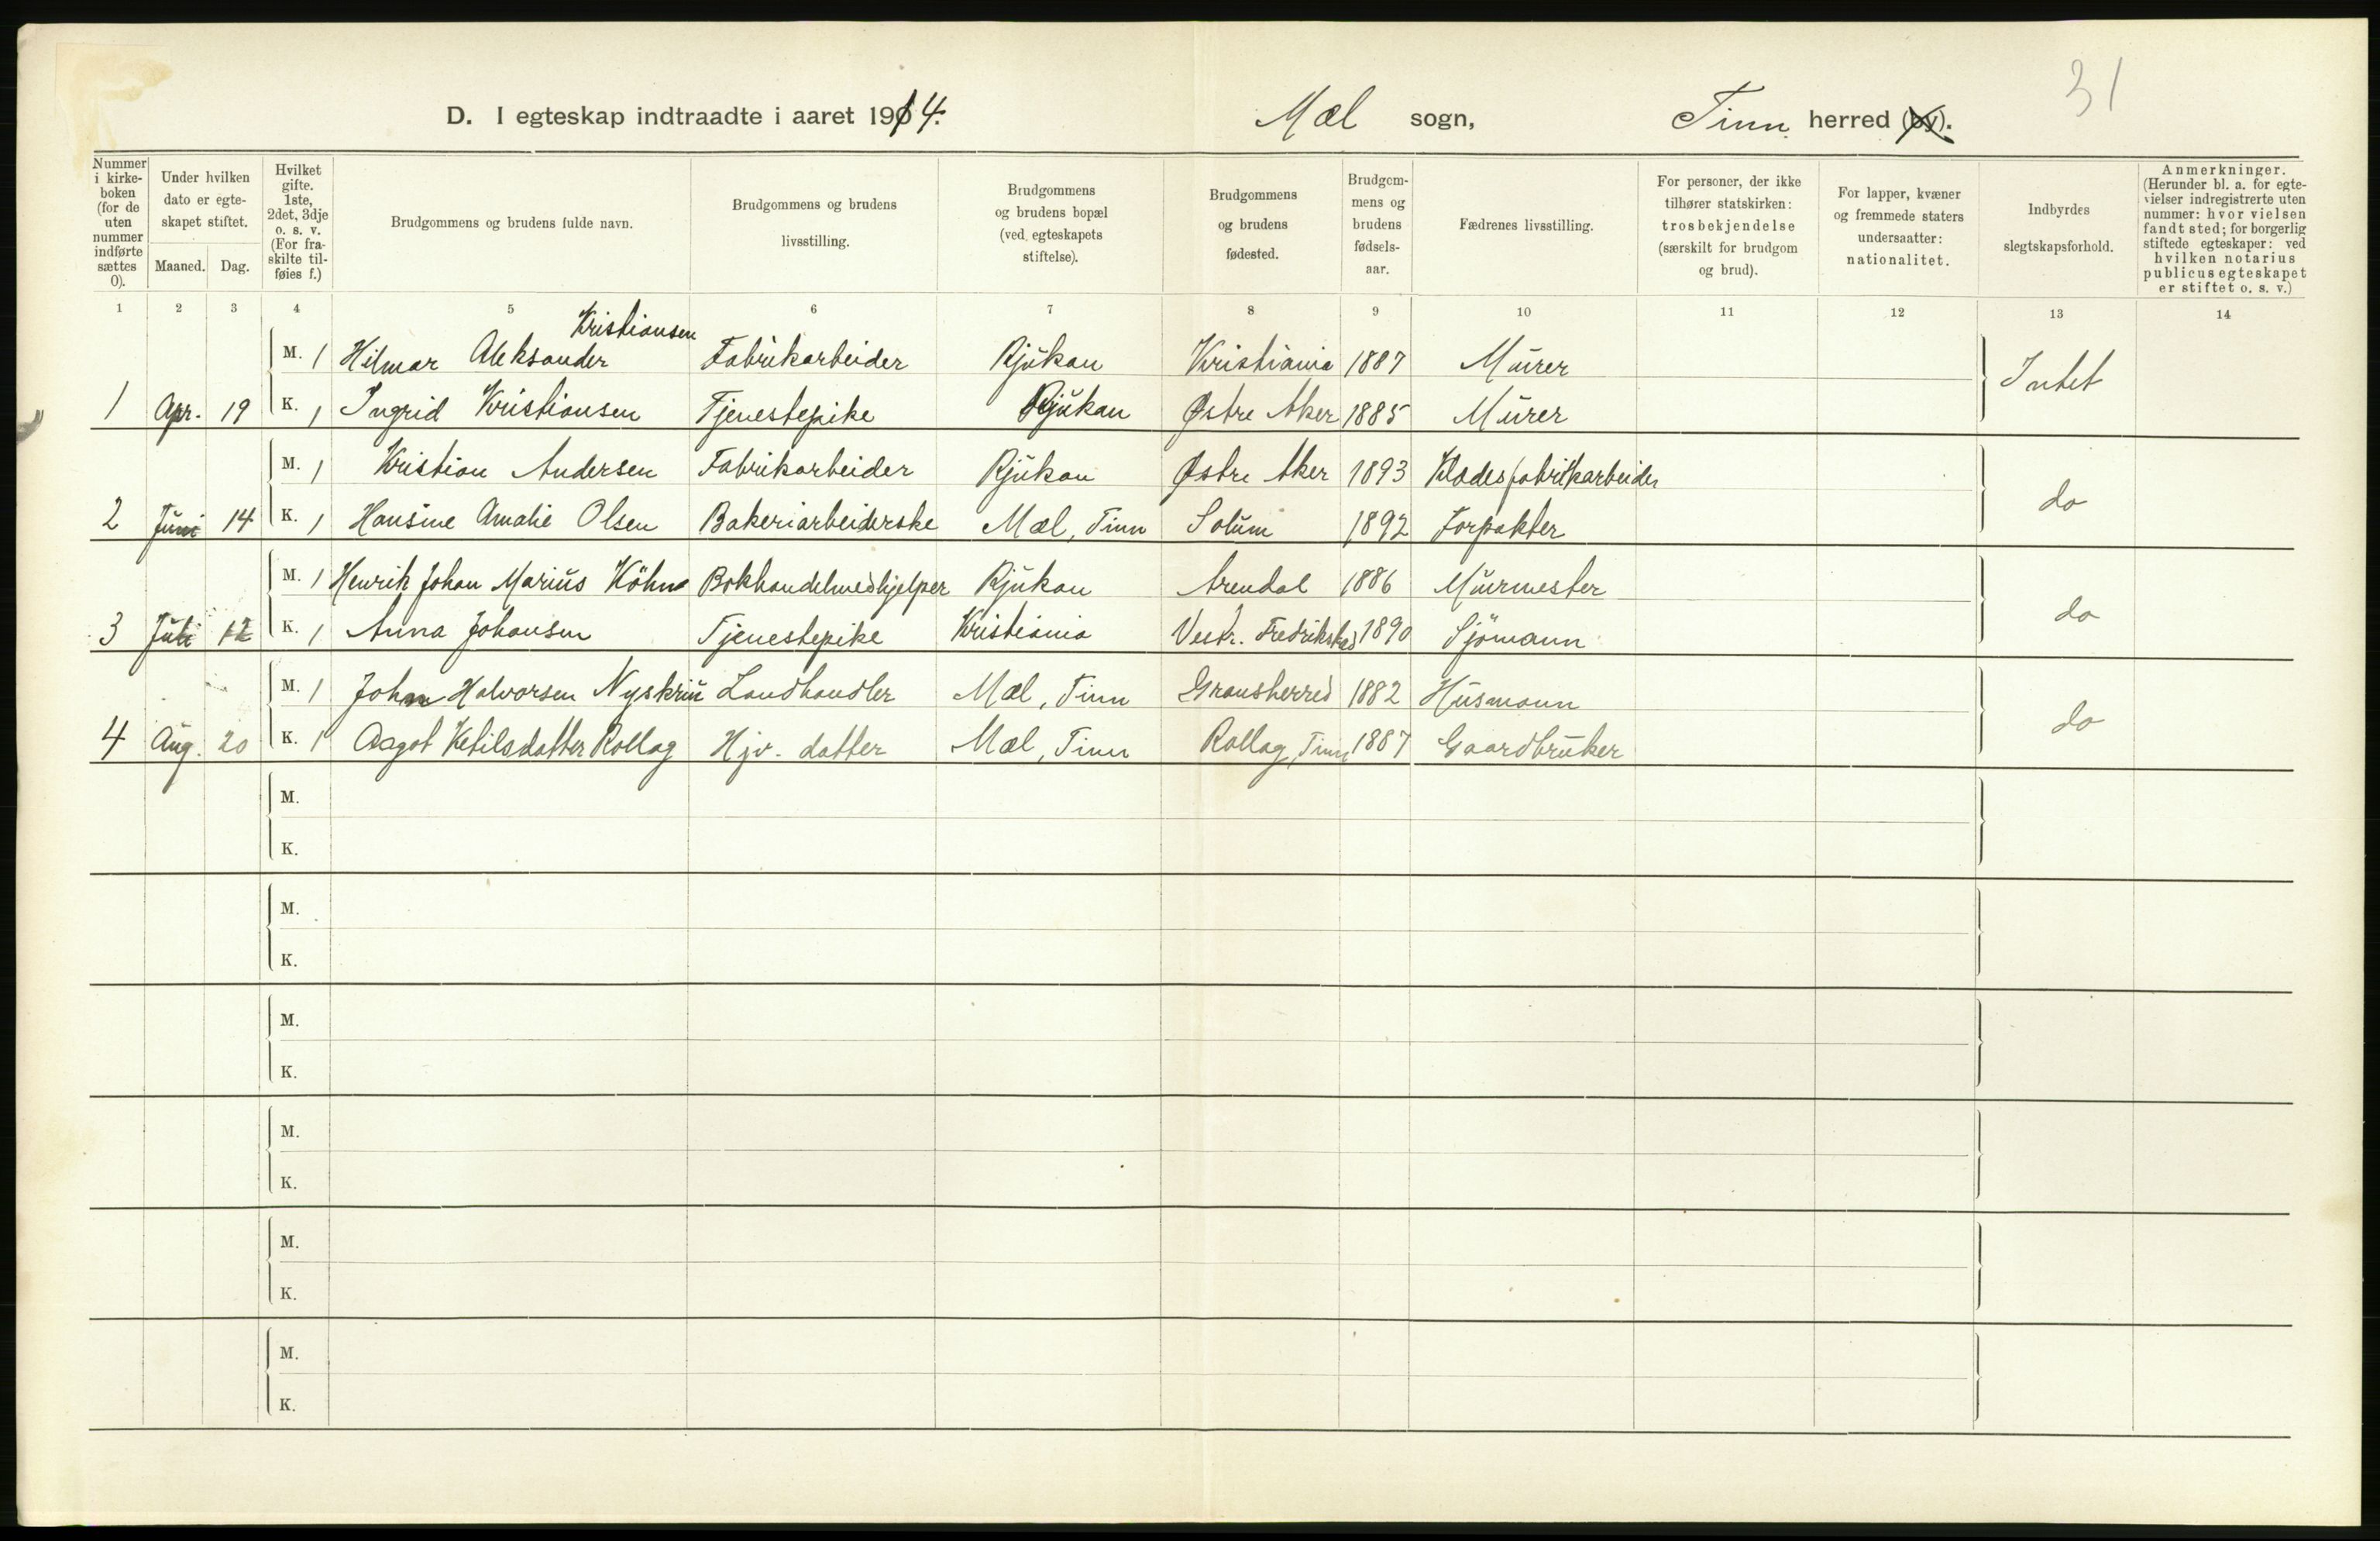 31
D. I egteskap indtraadte i aaret 1914. Mæl sogn, Tinn herred (by).
Nummer i kirkeboken (for de uten nummer indførte sættes 0).
Under hvilken dato er egteskapet stiftet.
Maaned. Dag.
Hvilket gifte. 1ste, 2det, 3dje o. s. v. (For fraskilte tilføies f.)
Brudgommens og brudens fulde navn.
Brudgommens og brudens livsstilling.
Brudgommens og brudens bopæl (ved egteskapets stiftelse).
Brudgommens og brudens fødested.
Brudgommens og brudens fødselsaar.
Fædrenes livsstilling.
For personer, der ikke tilhører statskirken: trosbekjendelse (særskilt for brudgom og brud).
For lapper, kvæner og fremmede staters undersaatter: nationalitet.
Indbyrdes slegtskapsforhold.
Anmerkninger. (Herunder bl. a. for egtevielser indregistrerte uten nummer: hvor vielsen fandt sted; for borgerlig stiftede egteskaper: ved hvilken notarius publicus egteskapet er stiftet o. s. v.)
1 2 3 4 5 6 7 8 9 10 11 12 13 14
M. 1 Hilmar Aleksander Kristiansen Fabrikarbeider Rjukan Kristiania 1887 Murer Intet
1 Apr. 19 K. 1 Ingrid Kristiansen Tjenestepike Rjukan Østre Aker 1885 Murer
M. 1 Kristian Andersen Fabrikarbeider Rjukan Østre Aker 1893 Klædesfabrikarbeider do
2 Juni 14 K. 1 Hansine Amalie Olsen Bakeriarbeiderske Mæl, Tinn Solum 1892 Forpakter
M. 1 Henrik Johan Marius Köhn Bokhandelmedhjelper Rjukan Arendal 1886 Murmester do
3 Juli 12 K. 1 Anna Johansen Tjenestepike Kristiania Vestr. Fredrikstad 1890 Sjömann
M. 1 John Halvorsen Nyskriu Landhandler Mæl, Tinn Gransherred 1882 Husmann do
4 Aug. 20 K. 1 Aagot Ketilsdatter Rollag Hjv. datter Mæl, Tinn Rollag, Tinn 1887 Gaardbruker
M.
K.
M.
K.
M.
K.
M.
K.
M.
K.
M.
K.